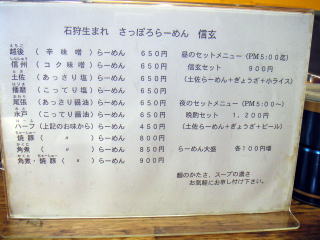 石狩生まれ さっぽろらーめん 信玄
越後 (辛味噌) らーめん 650円
信州 (コク味噌) らーめん 650円
土佐 (あっさり塩) らーめん 650円
播磨 (こってり塩) らーめん 650円
尾張 (あっさり醤油) らーめん 650円
水戸 (こってり醤油) らーめん 650円
ハーフ (上記のお味から) らーめん 450円
焼豚 ( 〃 ) らーめん 800円
角煮 ( 〃 ) らーめん 850円
角煮・焼豚 ( 〃 ) らーめん 900円
昼のセットメニュー (PM5:00迄)
信玄セット 900円
(土佐らーめん+ぎょうざ+小ライス)
夜のセットメニュー (PM5:00~)
晩酌セット 1,200円
(土佐らーめん+ぎょうざ+ビール)
らーめん大盛 各100円増
麺のかたさ、スープの濃さ
お気軽にお申し付け下さい。